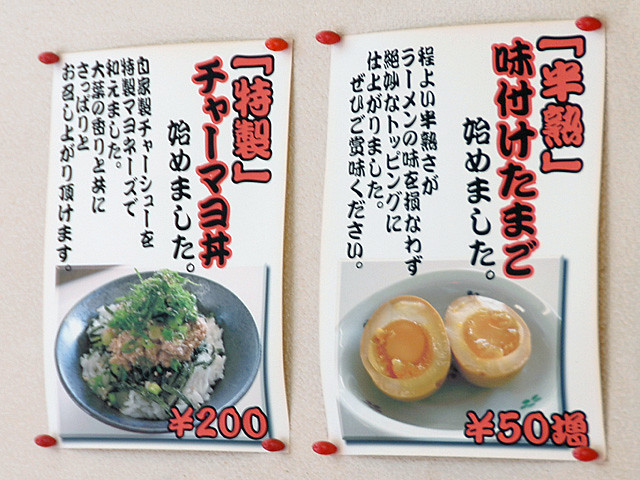 「特製」
チャーマヨ丼
始めました。
自家製チャーシューを
特製マヨネーズで
和えました。
大葉の香りと共に
さっぱりと
お召し上がり頂けます。
¥200
「半熟」
味付けたまご
始めました。
程よい半熟さが
ラーメンの味を損なわず
絶妙なトッピングに
仕上がりました。
ぜひご賞味ください。
¥50増